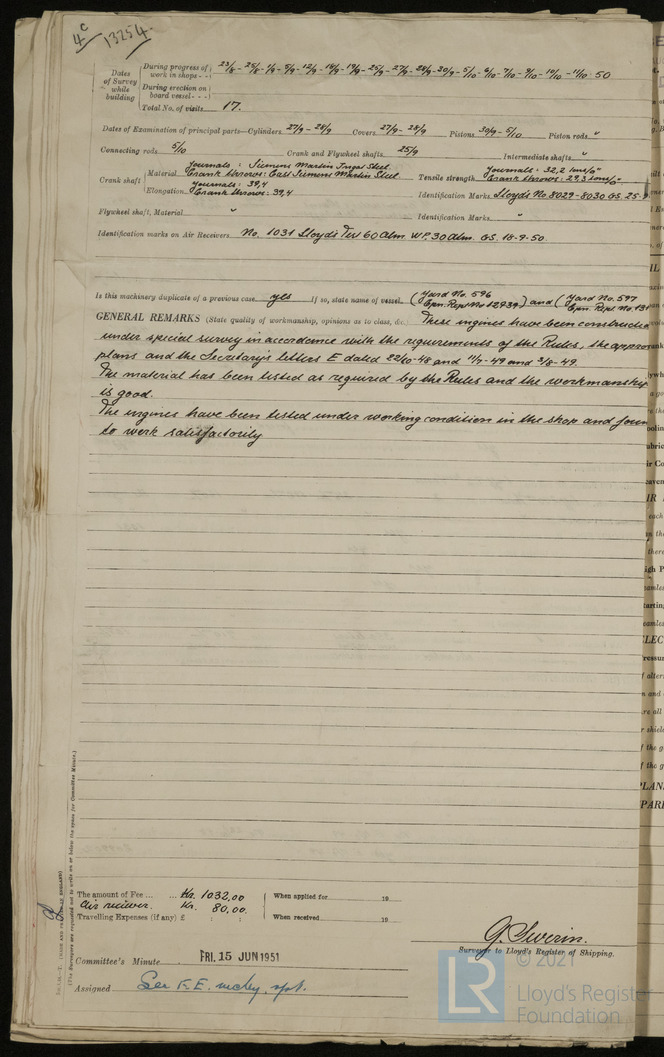 4c
13254.
Dates of Survey while building
During progress of work in shops - - 23/8 - 25/8 - 1/9 - 5/9 - 12/9 - 14/9 - 19/9 - 25/9 - 27/9 - 28/9 - 30/9 - 5/10 - 6/10 - 7/10 - 9/10 - 10/10 - 11/10 - 50
During erection on board vessel - - -
Total No. of visits 17.
Dates of Examination of principal parts—Cylinders 27/9 - 28/9 Covers 27/9 - 28/9 Pistons 30/9 - 5/10 Piston rods "
Connecting rods 5/10 Crank and Flywheel shafts 25/9 Intermediate shafts "
Crank shaft Material Journals: Siemens Martin Ingot Steel
Crank throws: Cast Siemens Martin Steel
Tensile strength Journals: 32,2 tons/□"
Crank throws: 29,3 tons/□"
Elongation Journals: 39,4
Crank throws: 39,4
Identification Marks Lloyd's No 8029-8030 GS. 25-9
Flywheel shaft, Material " Identification Marks "
Identification marks on Air Receivers No. 1031 Lloyd's Test 60 Atm. WP 30 Atm. GS. 18-9-50.
Is this machinery duplicate of a previous case yes If so, state name of vessel (Yard No. 596 Cpn. Rept. No 12939) and (Yard No. 597 Cpn. Rept. No 131
GENERAL REMARKS (State quality of workmanship, opinions as to class, &c.) These engines have been constructed
under special survey in accordance with the requirements of the Rules, the approv
plans and the Secretary's letters E dated 22/10-48 and 11/7-49 and 3/8-49.
The material has been tested as required by the Rules and the workmanship
is good.
The engines have been tested under working condition in the shop and foun
to work satisfactorily
The amount of Fee ... ... Kr. 1032,00 When applied for 19
Air reciever. Kr. 80,00.
Travelling Expenses (if any) £ : : When received 19
G. Swerin.
Surveyor to Lloyd's Register of Shipping.
Committee's Minute FRI. 15 JUN 1951
Assigned See F.E. mchy. rpt.
(The Surveyors are requested not to write on or below the space for Committee Minute.)
© 2021
LR
Lloyd's Register
Foundation